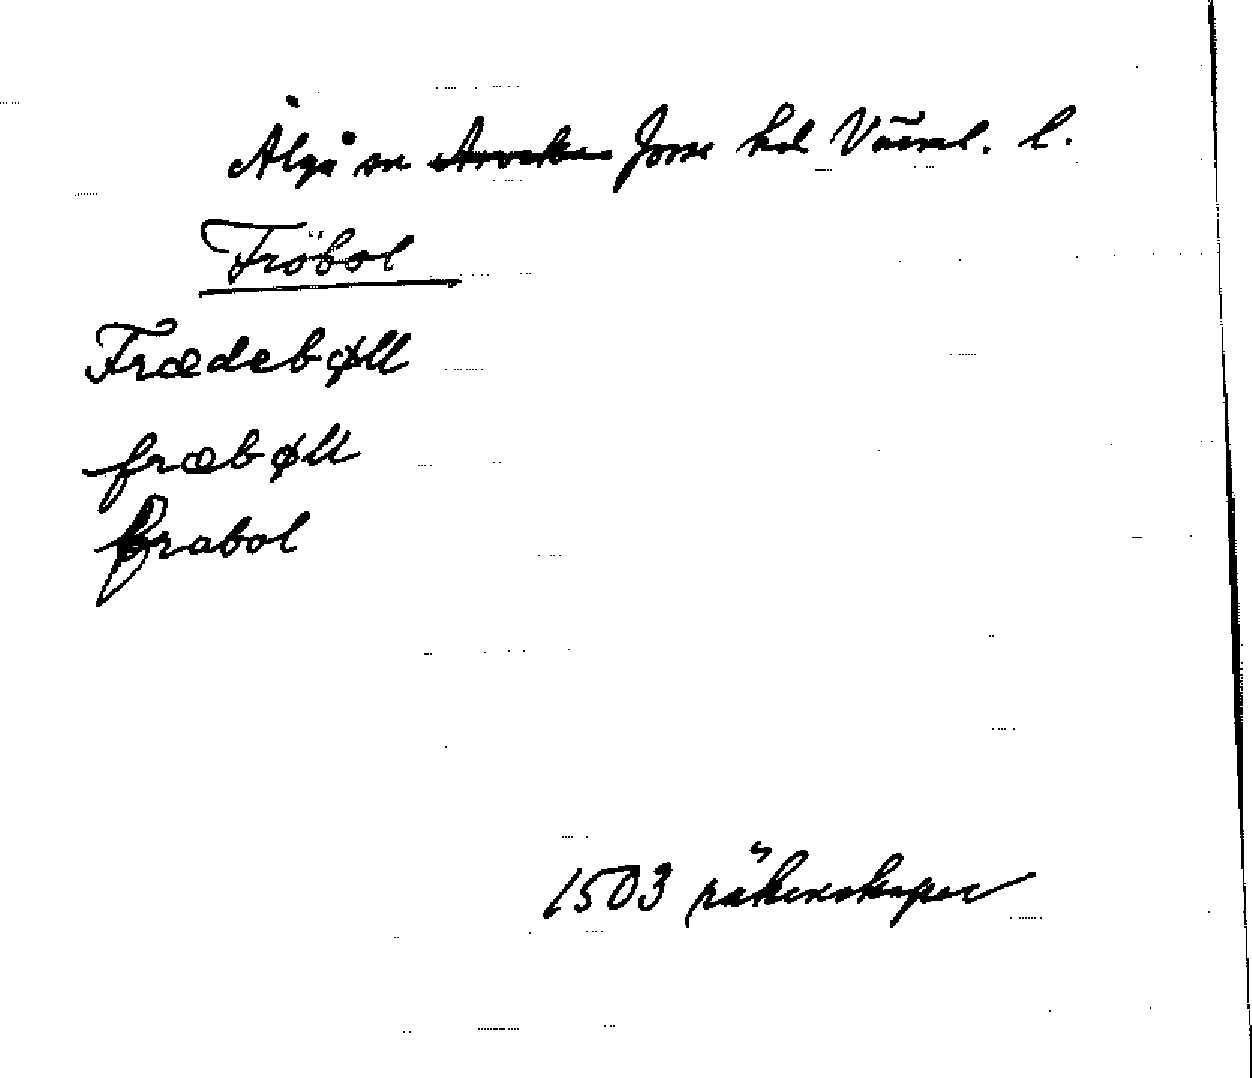 Älgå sn Jösse hd Värml. l.
Fröbol
Frædebøll
fræbøll
frabol
1503 räkenskaper